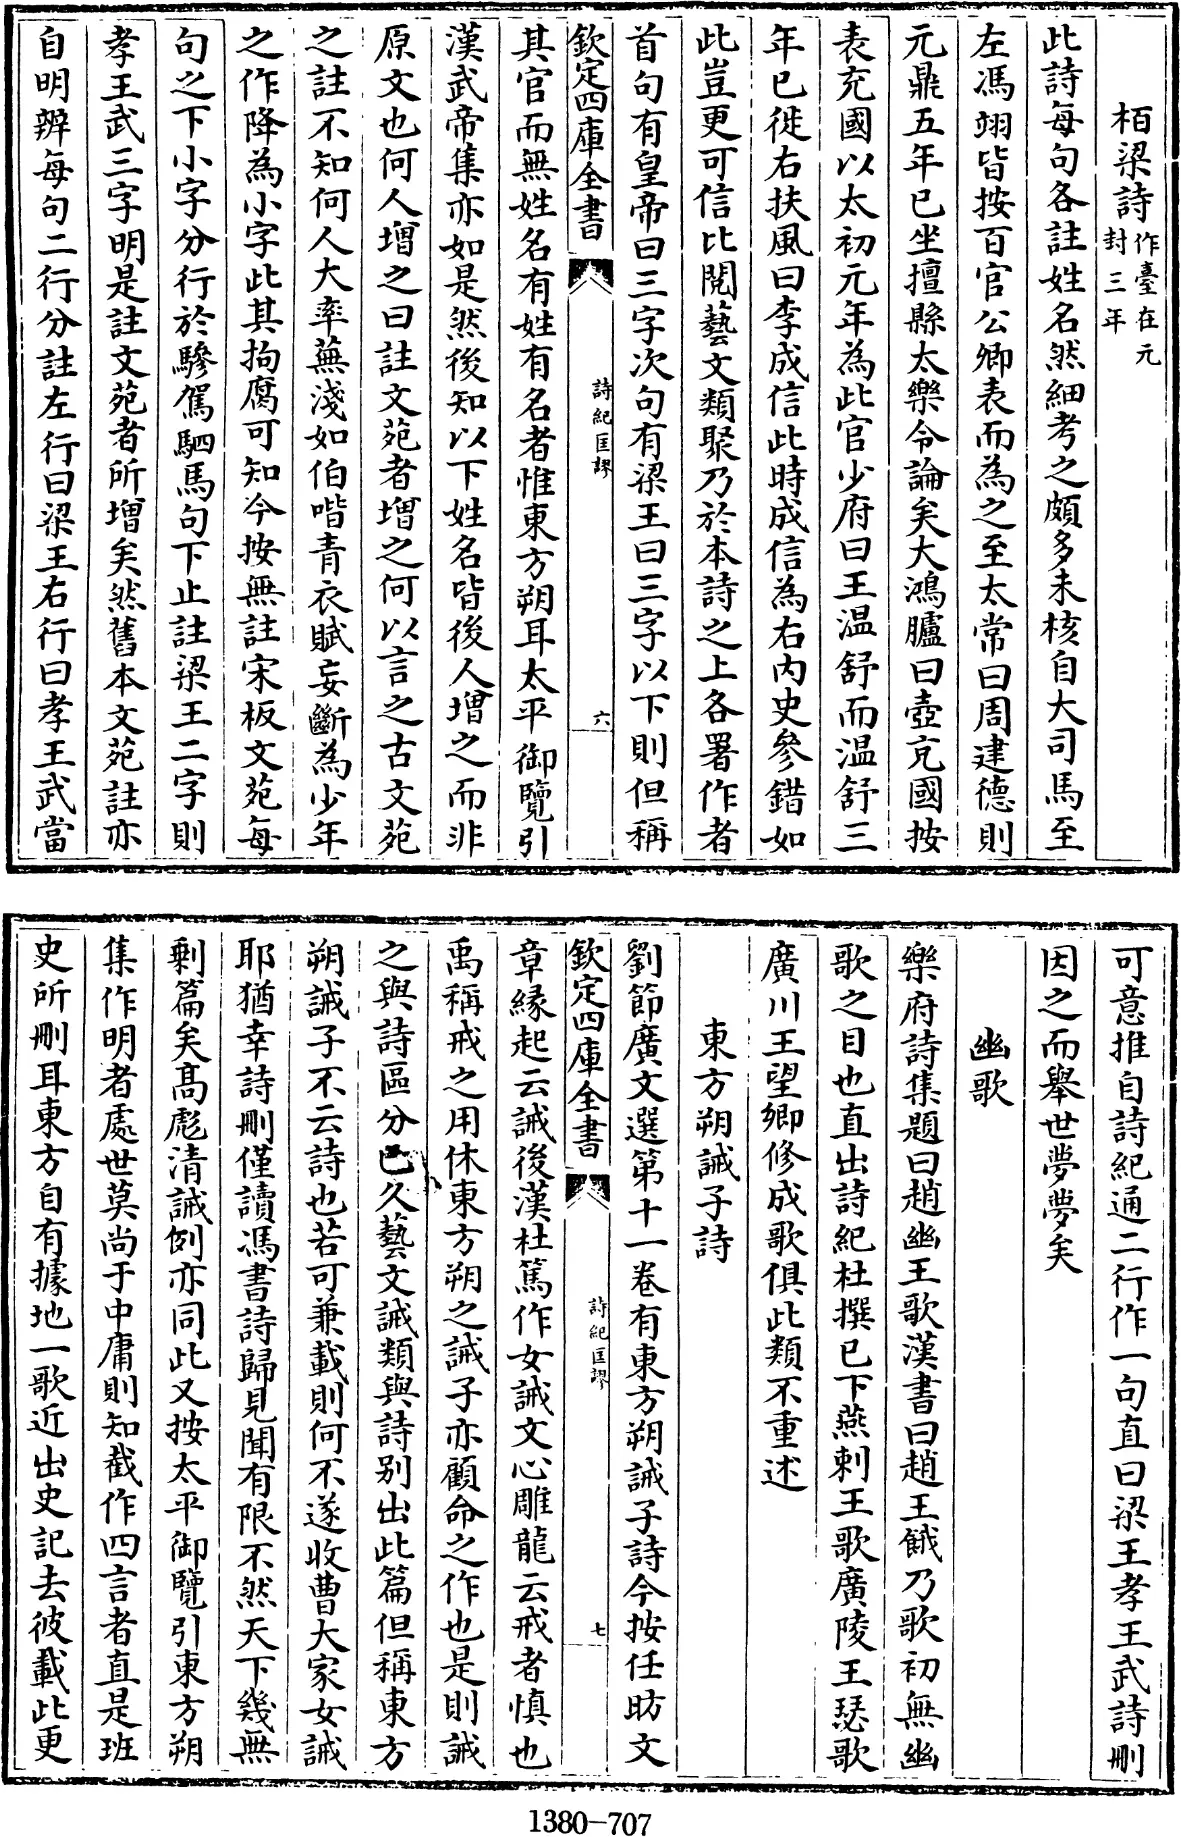 栢梁詩作臺在元封三年
此詩每句各註姓名然細考之頗多未核自大司馬至
左馮翊皆按百官公卿表而為之至太常曰周建德則
元鼎五年已坐擅繇太樂令論矣大鴻臚曰壺充國按
表充國以太初元年為此官少府曰王温舒而温舒三
年已徙右扶風曰李成信此時成信為右內史參錯如
此豈更可信比閱藝文類聚乃於本詩之上各署作者
首句有皇帝曰三字次句有梁王曰三字以下則但稱
欽定四庫全書
詩紀匡謬
六
其官而無姓名有姓有名者惟東方朔耳太平御覽引
漢武帝集亦如是然後知以下姓名皆後人增之而非
原文也何人增之曰註文苑者增之何以言之古文苑
之註不知何人大率蕪淺如伯喈青衣賦妄斷為少年
之作降為小字此其拘腐可知今按無註宋板文苑每
句之下小字分行於驂駕駟馬句下止註梁王二字則
孝王武三字明是註文苑者所增矣然舊本文苑註亦
自明辨每句二行分註左行曰梁王右行曰孝王武當
可意推自詩紀通二行作一句直曰梁王孝王武詩刪
因之而舉世夢夢矣
幽歌
樂府詩集題曰趙幽王歌漢書曰趙王餓乃歌初無幽
歌之目也直出詩紀杜撰已下燕刺王歌廣陵王瑟歌
廣川王望卿修成歌俱此類不重述
東方朔誡子詩
劉節廣文選第十一卷有東方朔誡子詩今按任昉文
欽定四庫全書
詩紀匡謬
七
章緣起云誡後漢杜篤作女誡文心雕龍云戒者慎也
禹稱戒之用休東方朔之誡子亦顧命之作也是則誡
之與詩區分已久藝文誡類與詩別出此篇但稱東方
朔誡子不云詩也若可兼載則何不遂收曹大家女誡
耶猶幸詩刪僅讀馮書詩歸見聞有限不然天下幾無
剩篇矣高彪清誡例亦同此又按太平御覽引東方朔
集作明者處世莫尚于中庸則知截作四言者直是班
史所刪耳東方自有據地一歌近出史記去彼載此更
1380-707